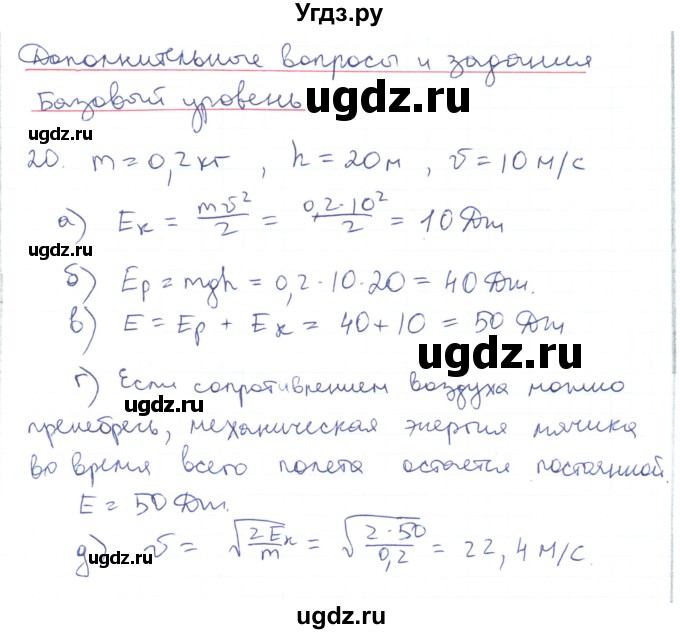 Угдз.ру
Дополнительные вопросы и задания
Базовый уровень
ugdz.ru
ugdz.ru
20. m = 0,2 кг , h = 20 м , v = 10 м/с
а) Eк = mv²/2 = 0,2·10²/2 = 10 Дж
ugdz.ru
б) Ep = mgh = 0,2·10·20 = 40 Дж.
в) E = Ep + Eк = 40 + 10 = 50 Дж
ugdz.ru
г) Если сопротивлением воздуха можно
ugdz.ru
пренебречь, механическая энергия мячика
во время всего полета остается постоянной.
E = 50 Дж.
д) v = √(2Eк/m) = √(2·50/0,2) = 22,4 м/с.
ugdz.ru
ugdz.ru